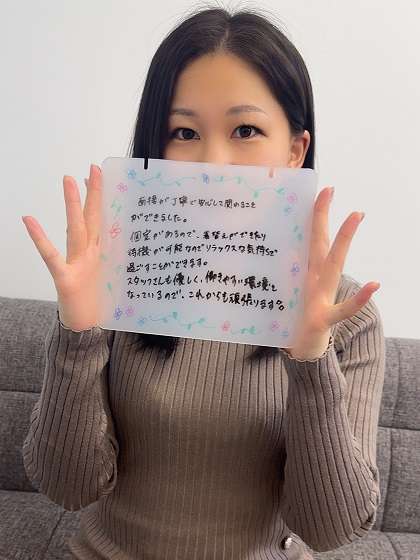 面接が丁寧で安心して聞けること
ができました。
個室があるので、着替えができたり
待機が可能なのでリラックスな気持ちで
過ごすことができます。
スタッフさんも優しく、働きやすい環境に
なっているので、これからも頑張ります。